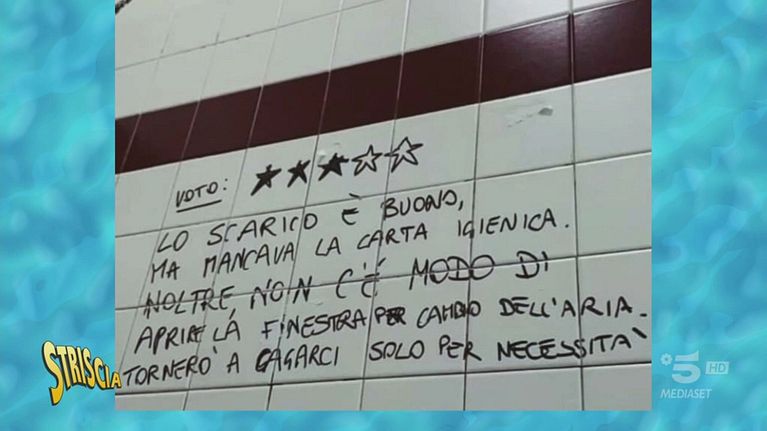 VOTO: ★★★☆☆
LO SCARICO È BUONO,
MA MANCAVA LA CARTA IGIENICA.
INOLTRE, NON C'È MODO DI
APRIRE LA FINESTRA PER CAMBIO DELL'ARIA.
TORNERÒ A CAGARCI SOLO PER NECESSITÀ
STRISCIA
5 HD
MEDIASET